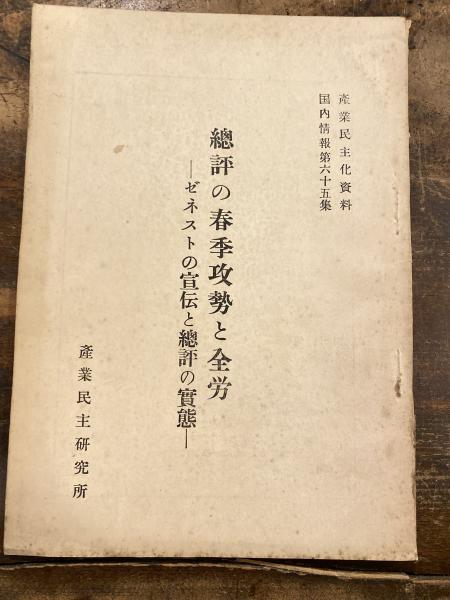 產業民主化資料
国内情報第六十五集
總評の春季攻勢と全労
―ゼネストの宣伝と總評の實態―
產業民主研究所